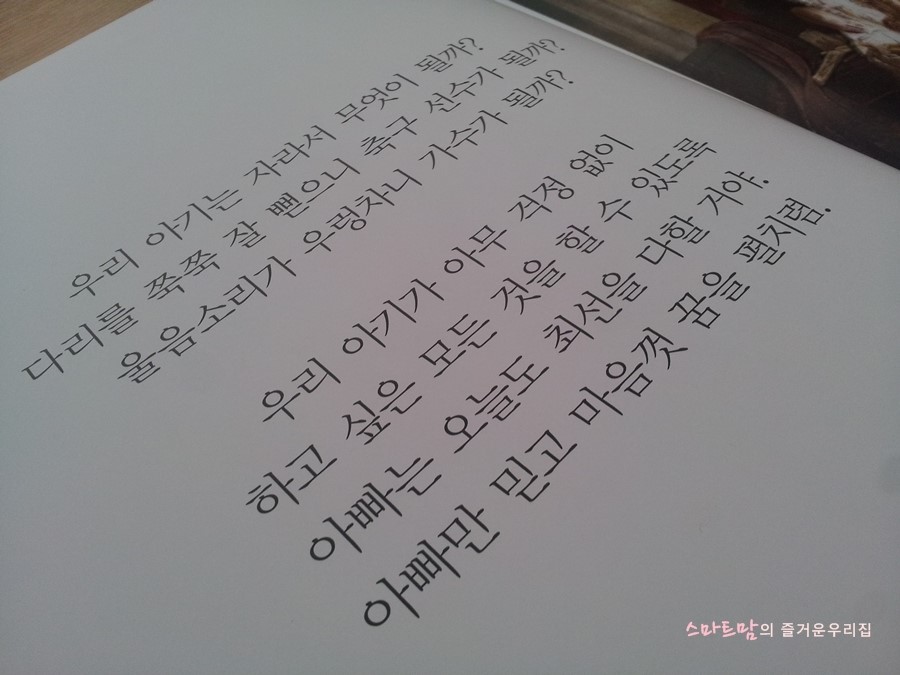 우리 아기는 자라서 무엇이 될까?
다리를 쭉쭉 잘 뻗으니 축구 선수가 될까?
울음소리가 우렁차니 가수가 될까?
우리 아기가 아무 걱정 없이
하고 싶은 모든 것을 할 수 있도록
아빠는 오늘도 최선을 다할 거야.
아빠만 믿고 마음껏 꿈을 펼치렴.
스마트맘의 즐거운우리집